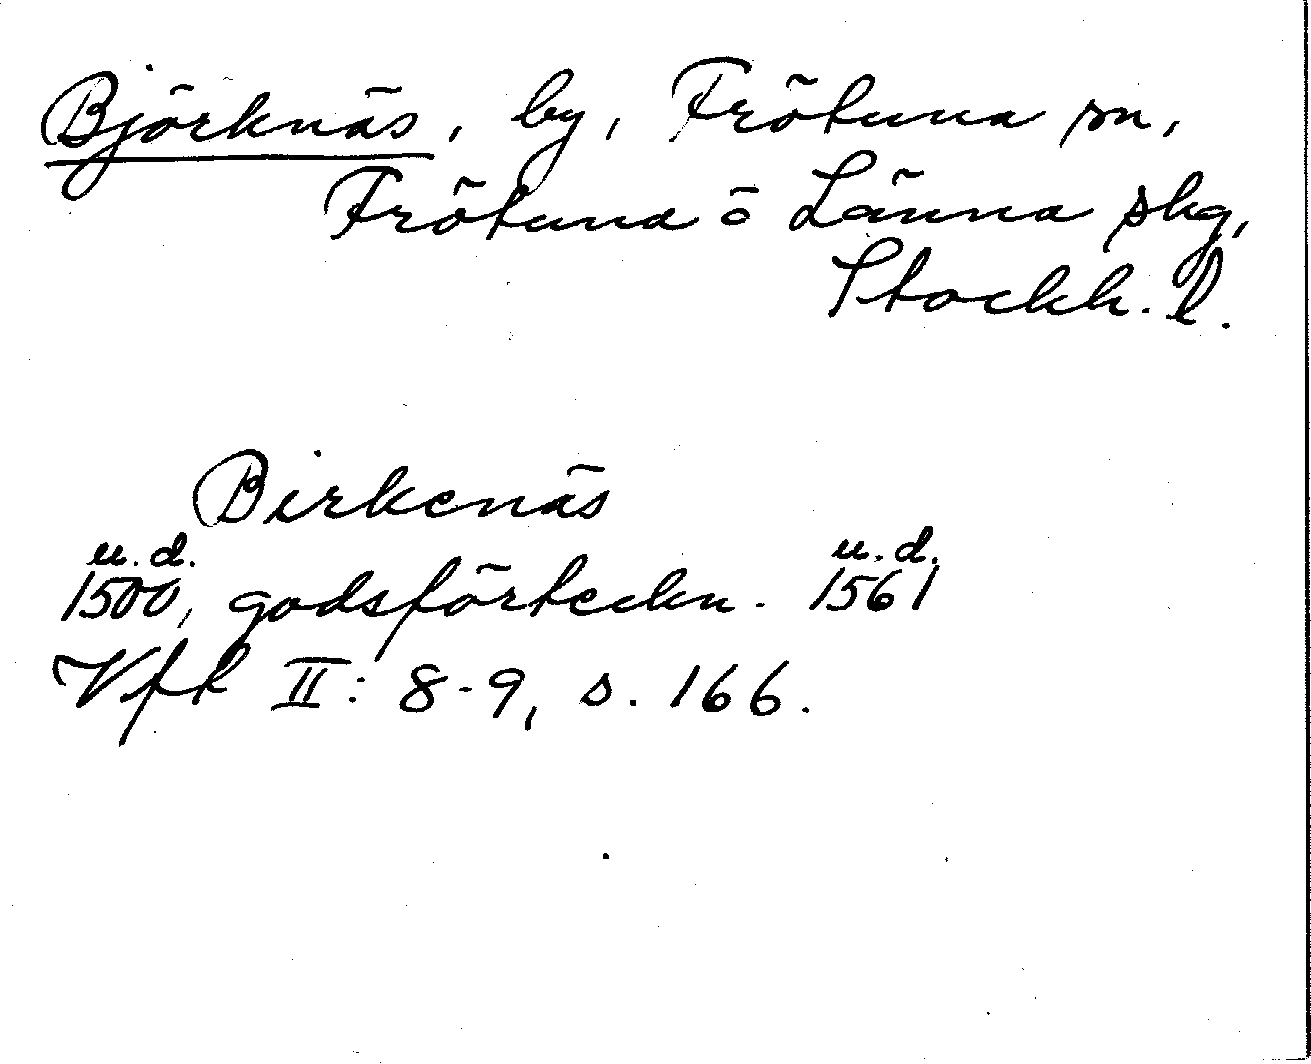 Björknäs, by, Frötuna sn,
Frötuna o Länna skg,
Stockh. l.
Birkenäs
u.d. u.d.
1500, godsförteckn. 1561
Vfk II: 8-9, s. 166.